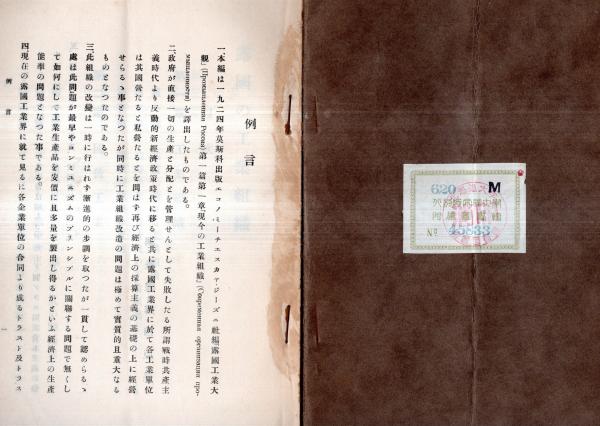 例言
一、本編は一九二四年莫斯科出版エコノミーチエスカヤジーズニ社編露國工業大
觀」(Промышленная Россия)第一篇第一章「現今の工業組織」(Современная организация про-
мышленности)を譯出したものである。
二、政府が直接一切の生產と分配とを管理せんとして失敗したる所謂戰時共產主
義時代より反動的新經濟政策時代に移ると共に露國工業界に於て各工業單位
は其國營たると私營たるとを問はず再び經濟上の採算主義の基礎の上に經營
せらるゝ事となつたが同時に工業組織改造の問題は極めて實質的且重大なる
ものとなつたのである。
三、此組織の改變は一時に行はれず漸進的の步調を取つたが一貫して認めらるゝ
處は此問題が最早やコンミユニズムのプリンシプルに關聯する問題で無くし
て如何にして工業生產品を安價に且多量を製出し得るかといふ經濟上の生產
能率の問題となつた事である。
四、現在の露國工業界に就て見るに各企業單位の合同より成るトラスト及トラス
例言
一
620 M
No 45833